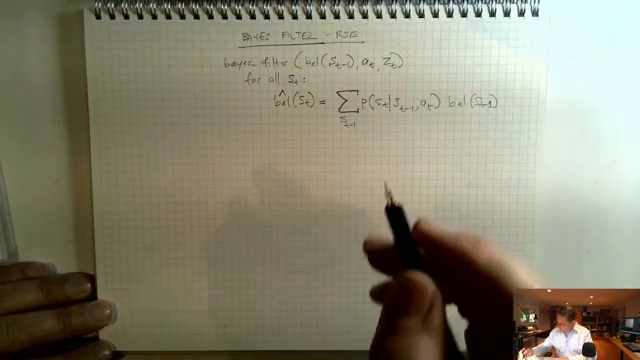 BAYES FILTER - RSE
bayes-filter (bel(S_{t-1}), a_t, Z_t)
for all S_t:
\hat{bel}(S_t) = \sum_{S_{t-1}} P(S_t | S_{t-1}, a_t) bel(S_{t-1})